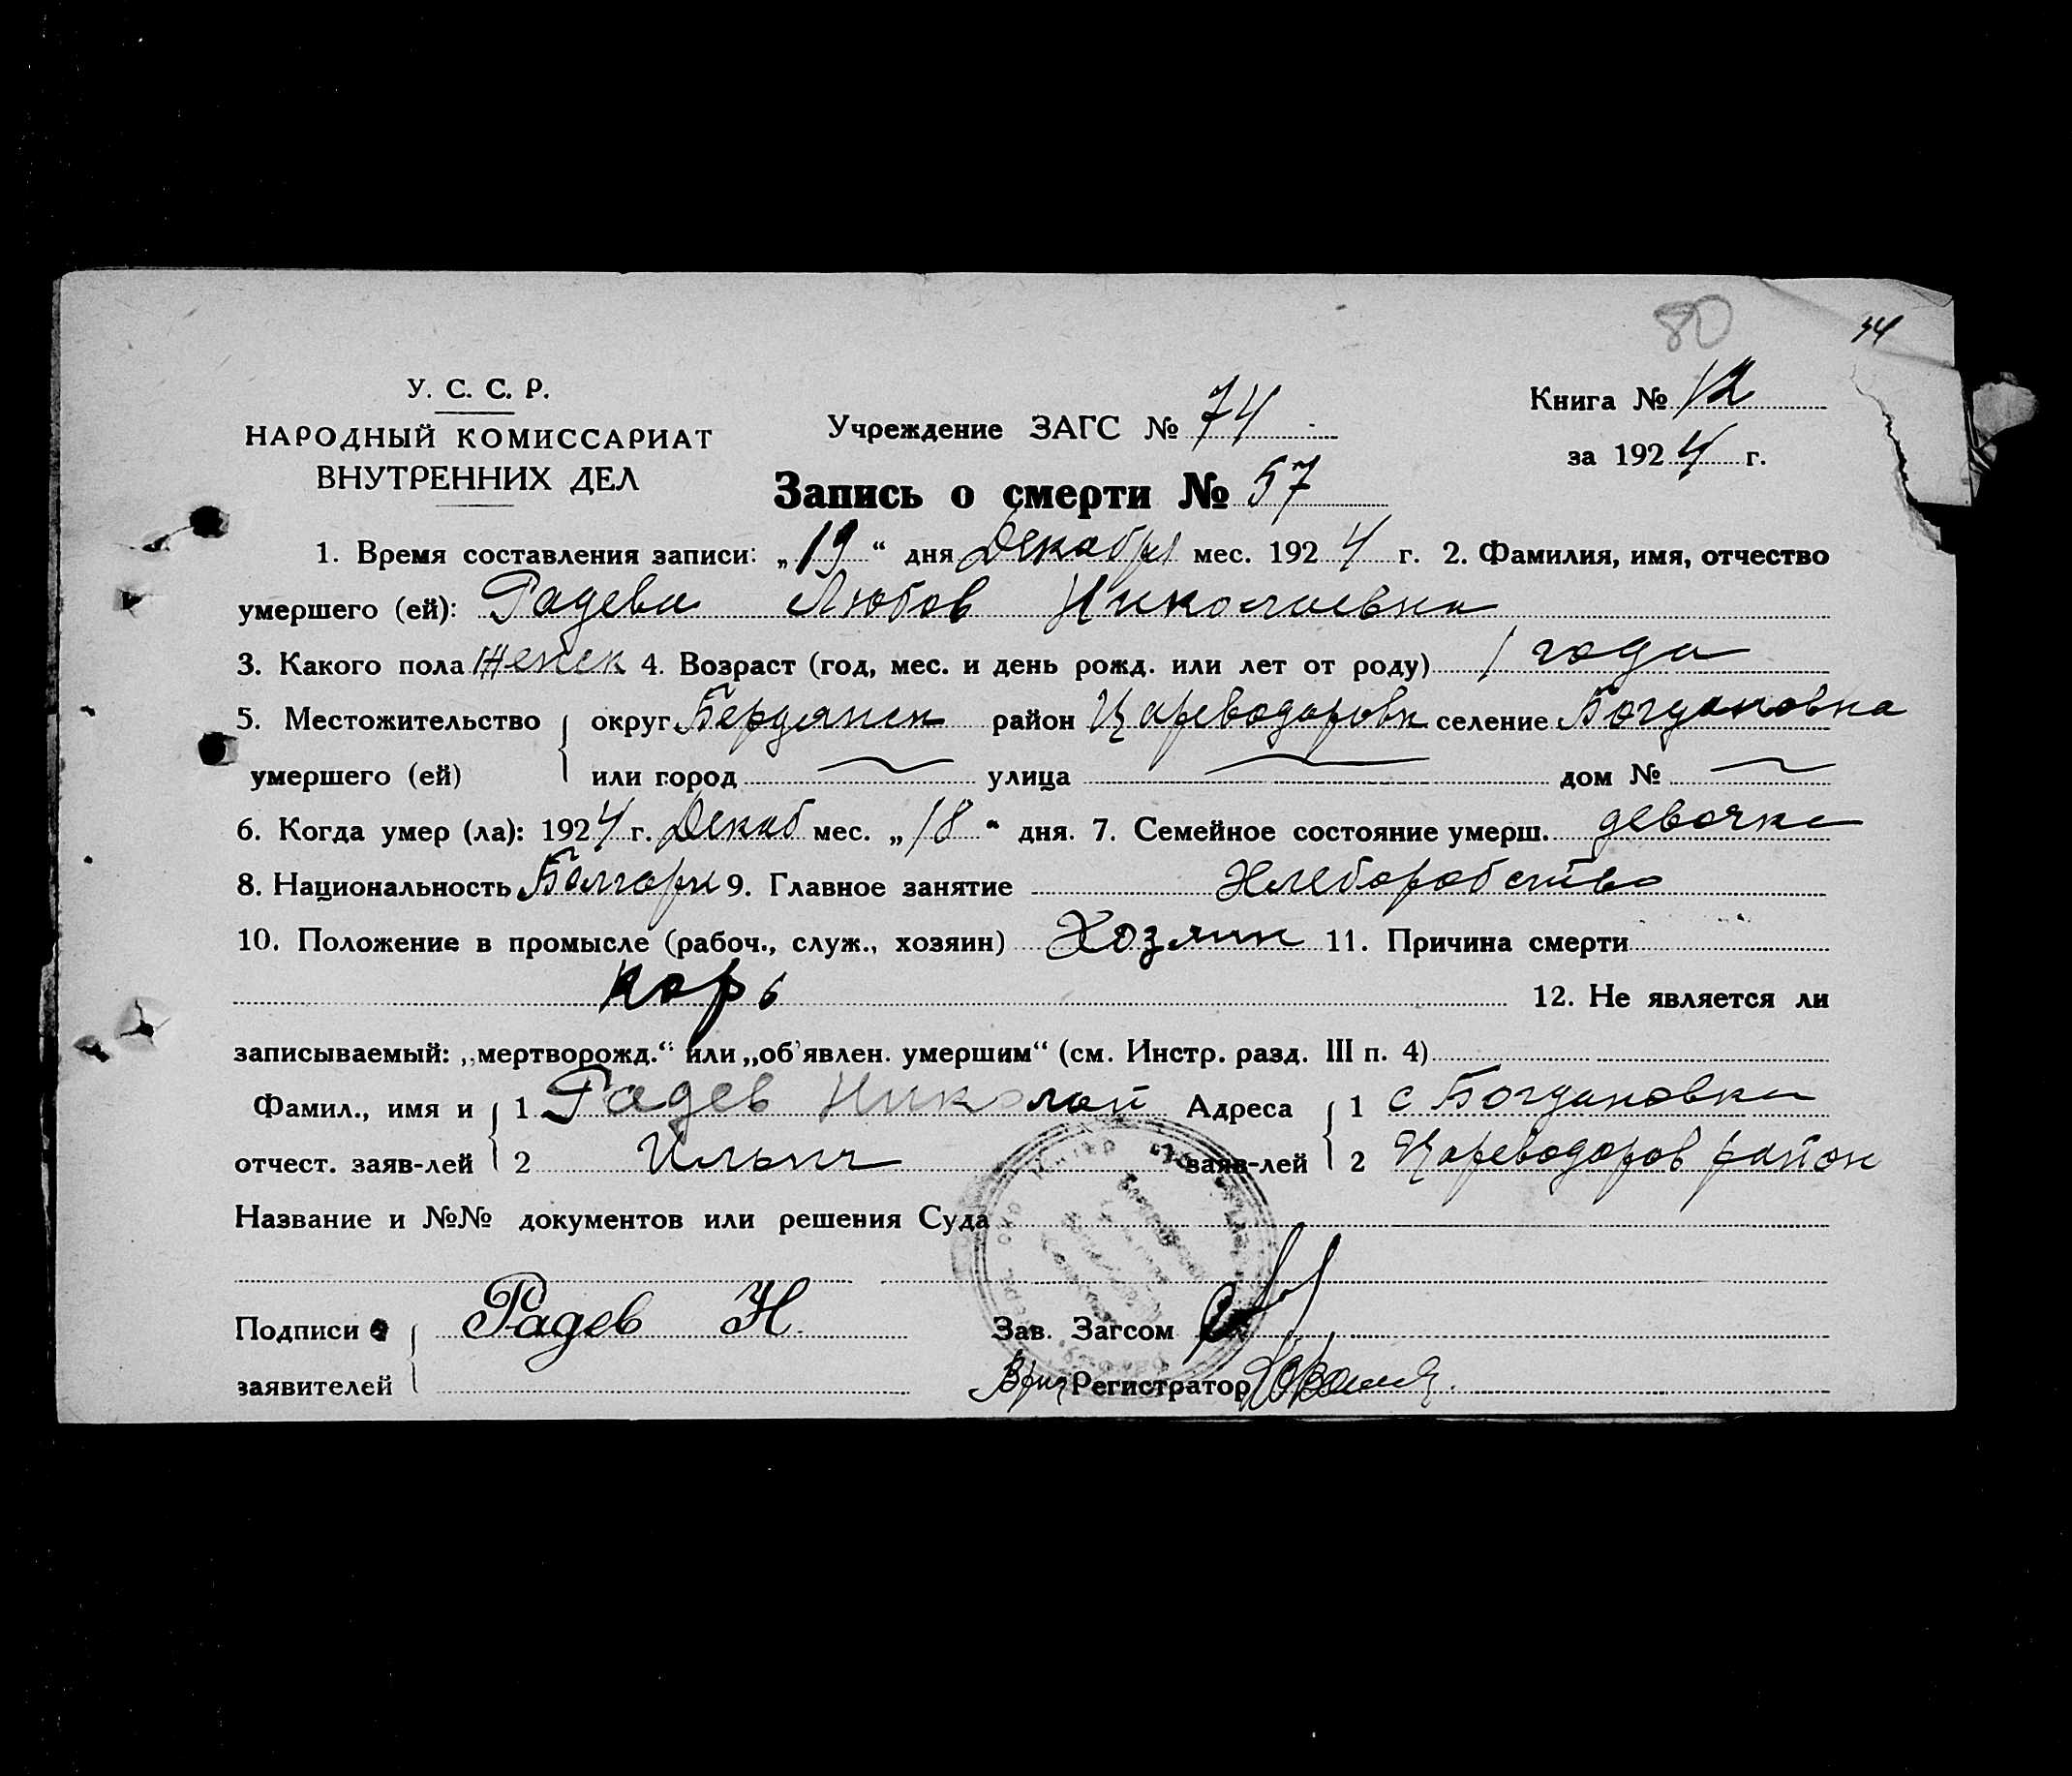 80
34
У. С. С. Р.
НАРОДНЫЙ КОМИССАРИАТ
ВНУТРЕННИХ ДЕЛ
Учреждение ЗАГС № 74
Книга № 12
за 1924 г.
Запись о смерти № 57
1. Время составления записи: „19“ дня Декабря мес. 1924 г. 2. Фамилия, имя, отчество
умершего (ей): Радева Любов Николаевна
3. Какого пола Женск 4. Возраст (год, мес. и день рожд. или лет от роду) 1 года
5. Местожительство округ Бердянск район Цареводаровк селение Богдановка
умершего (ей) или город — улица — дом № —
6. Когда умер (ла): 1924 г. Декаб мес. „18“ дня. 7. Семейное состояние умерш. девочка
8. Национальность Болгары 9. Главное занятие Хлеборобство
10. Положение в промысле (рабоч., служ., хозяин) Хозяин 11. Причина смерти
корь 12. Не является ли
записываемый: „мертворожд.“ или „об'явлен. умершим“ (см. Инстр. разд. III п. 4)
Фамил., имя и 1 Радев Николай Адреса 1 с Богдановка
отчест. заяв-лей 2 Ильич заяв-лей 2 Цареводаров район
Название и №№ документов или решения Суда
Подписи Радев Н. Зав. Загсом
заявителей Врид Регистратор